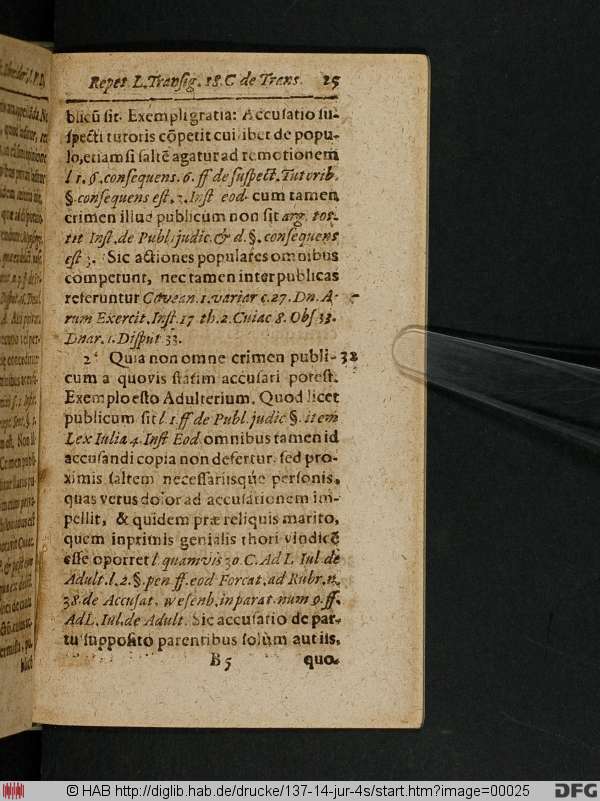 Repet. L. Transig. 18. C de Trans. 25
blicū sit. Exempli gratia: Accusatio su-
specti tutoris cōpetit cuilibet de popu-
lo, etiamsi saltē agatur ad remotionem
l 1. §. consequens. 6. ff de suspect. Tutorib.
§. consequens est. 3. Inst eod. cum tamen
crimen illud publicum non sit arg. tot.
tit Inst. de Publ. judic. & d. §. consequens
est 3. Sic actiones populares omnibus
competunt, nec tamen inter publicas
referuntur Covean. 1. variar c. 27. Dn. A-
rum Exercit. Inst. 17 th. 2. Cuiac 8. Obs 33.
Dnar. 1. Disput 33.
2. Quia non omne crimen publi- 32
cum a quovis statim accusari potest.
Exemplo esto Adulterium. Quod licet
publicum sit l 1. ff de Publ. judic §. item
Lex Iulia 4. Inst Eod. omnibus tamen id
accusandi copia non defertur. sed pro-
ximis saltem necessariisque personis,
quas verus dolor ad accusationem im-
pellit, & quidem præ reliquis marito,
quem inprimis genialis thori vindicē
esse oporret l quamvis 30. C. Ad L. Iul. de
Adult. l. 2. §. pen ff. eod Forcat. ad Rubr. n.
38. de Accusat. wesenb. in parat. num 9. ff.
Ad L. Iul. de Adult. Sic accusatio de par-
tu supposito parentibus solùm aut iis,
B 5 quo-
© HAB http://diglib.hab.de/drucke/137-14-jur-4s/start.htm?image=00025
DFG